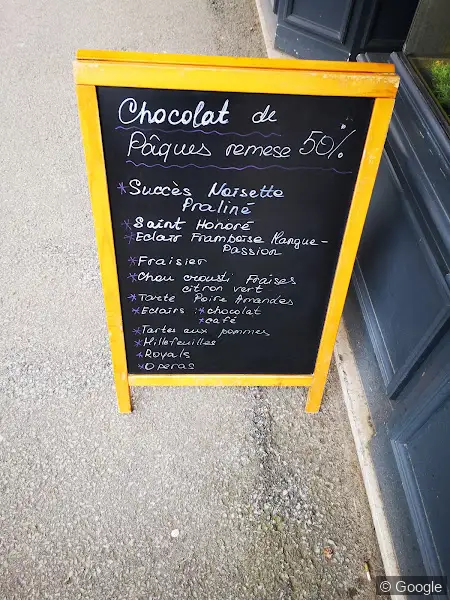 Chocolat de
Pâques remese 50%
*Succès Noisette
Praliné
*Saint Honoré
*Eclair Framboise Mangue-
Passion
*Fraisier
*Chou crousti Fraises
citron vert
*Tarte Poire Amandes
*Eclairs : *chocolat
*café
*Tartes aux pommes
*Millefeuilles
*Royals
*Operas
© Google